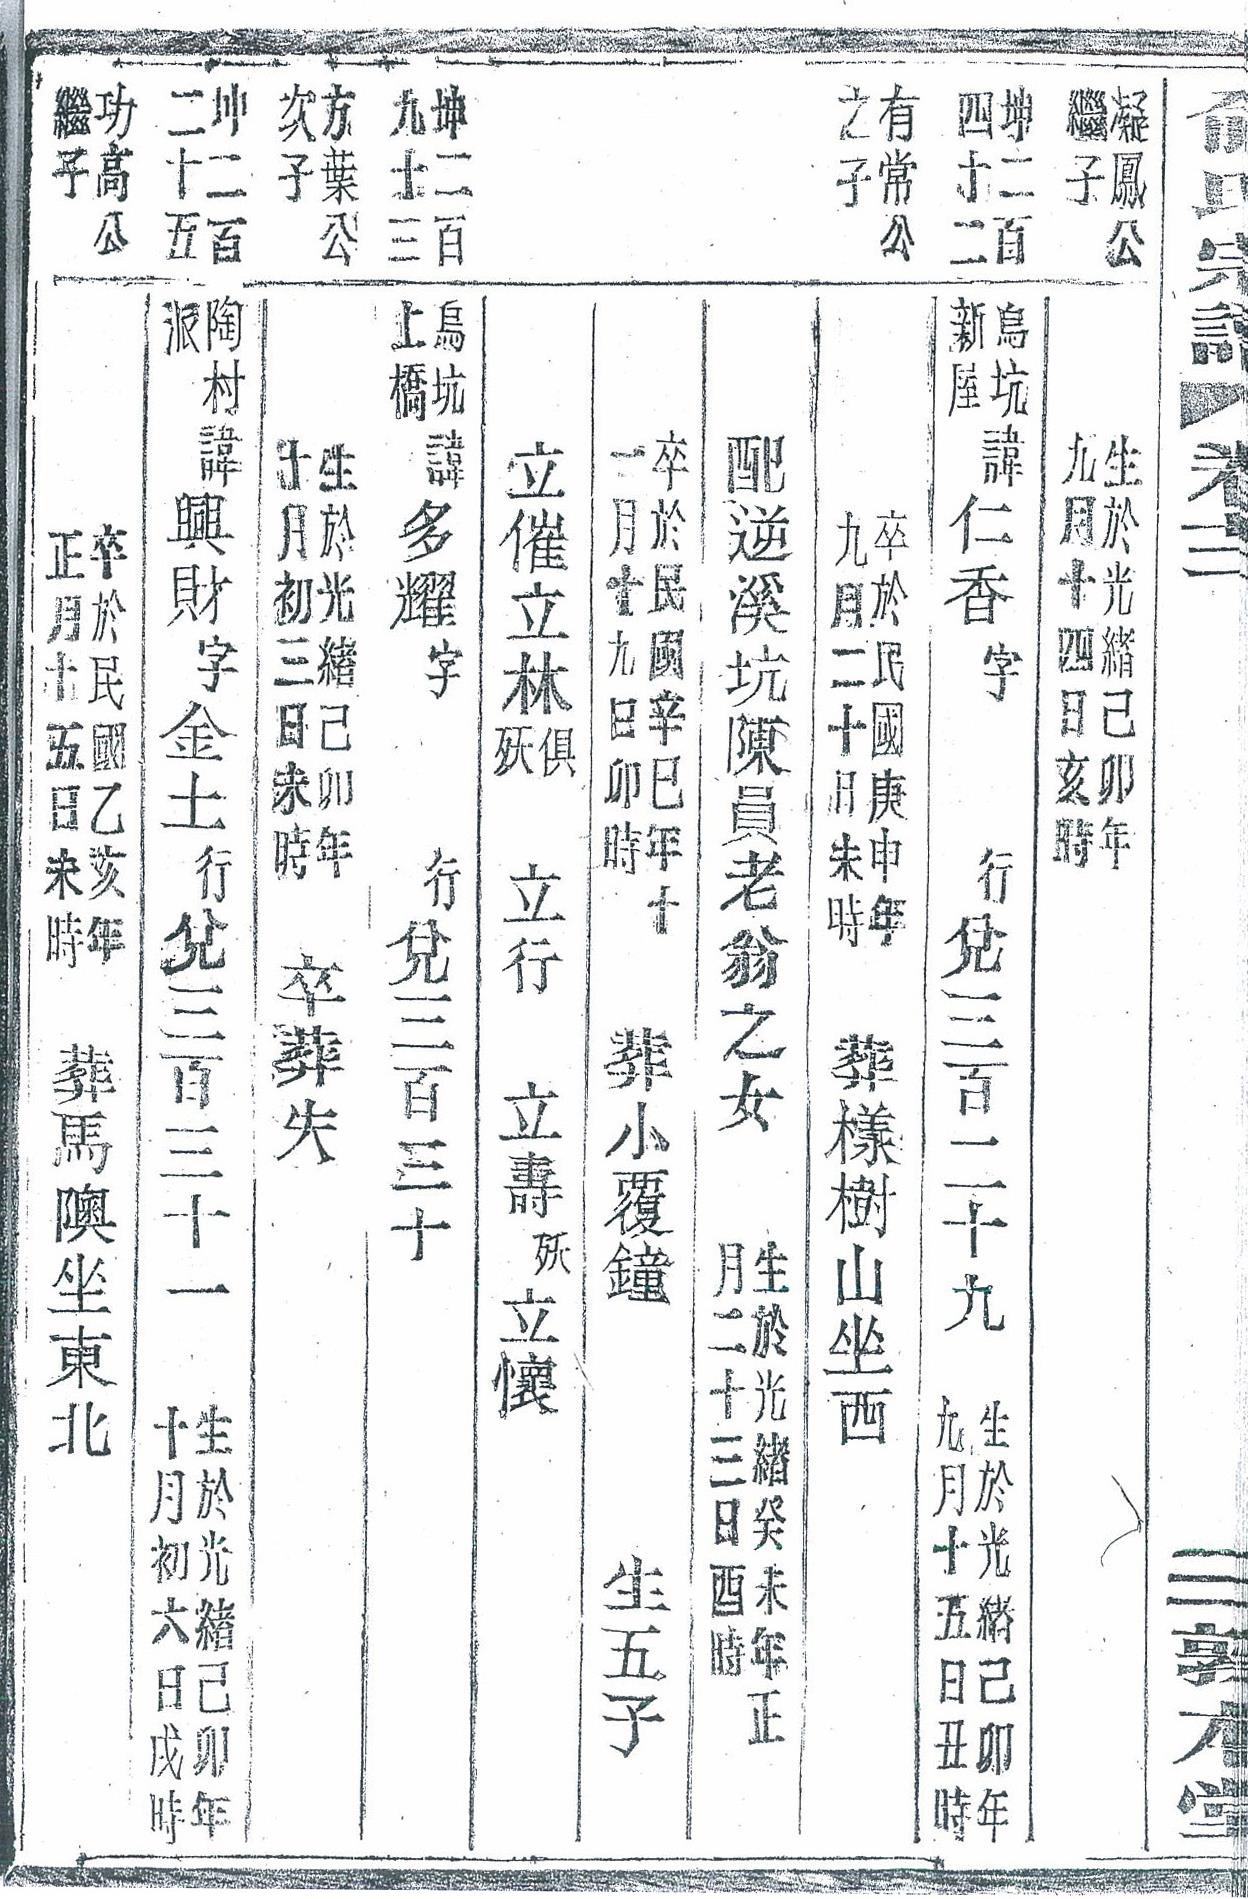 氏宗譜 卷三 三 敦本堂
凝鳳公
繼子
生於光緒己卯年
九月十四日亥時
坤二百
四十二
烏坑
新屋
諱仁香字 行兌三百二十九
生於光緒己卯年
九月十五日丑時
有常公
之子
卒於民國庚申年
九月二十日未時
葬樣樹山坐西
配逆溪坑陳員老翁之女
生於光緒癸未年正
月二十三日酉時
卒於民國辛巳年十
一月十九日卯時
葬小覆鐘 生五子
立催立林俱殀 立行 立壽殀立懷
坤二百
九十三
烏坑
上橋
諱多耀字 行兌三百三十
方葉公
次子
生於光緒己卯年
十月初三日未時
卒葬失
坤二百
二十五
陶村
派
諱興財字金土行兌三百三十一
生於光緒己卯年
十月初六日戌時
功高公
繼子
卒於民國乙亥年
正月十五日未時
葬馬隩坐東北